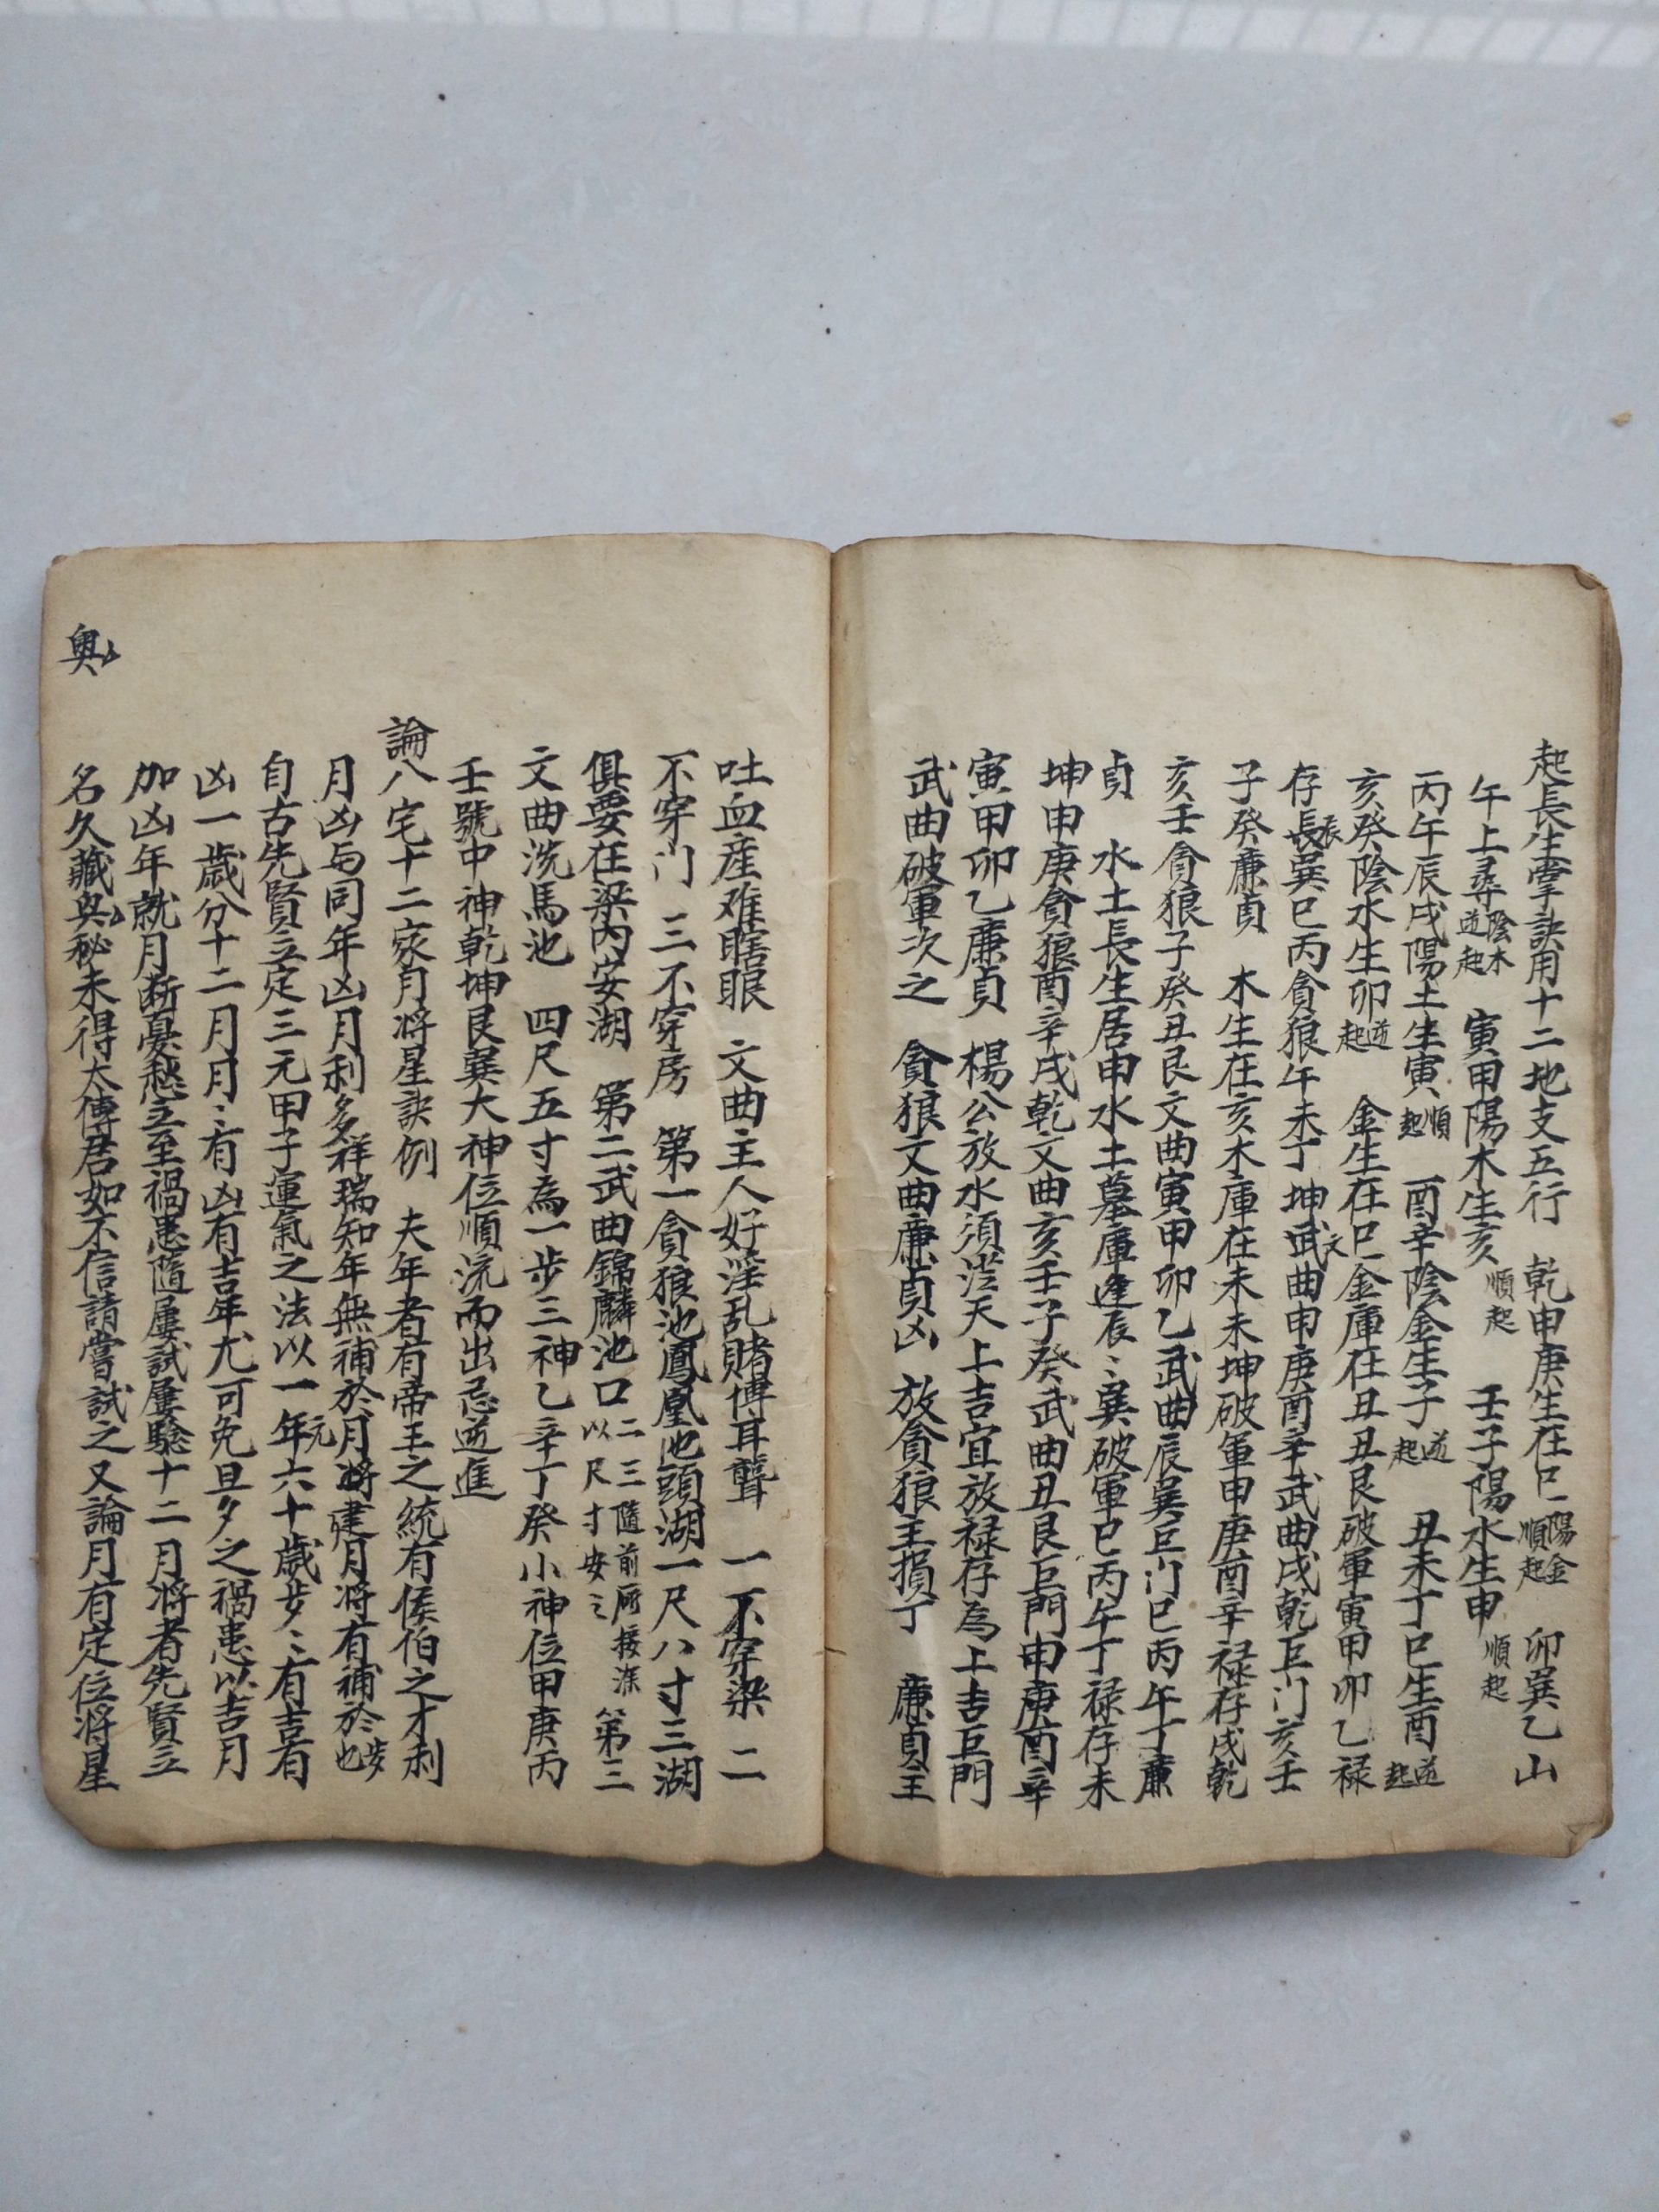 起長生掌訣用十二地支五行　乾申庚生在巳陽金順起　卯巽乙山
午上尋陰木逆起　寅甲陽木生亥順起　壬子陽水生申順起
丙午辰戌陽土生寅順起　酉辛陰金生子逆起　丑未丁巳生酉逆起
亥癸陰水生卯逆起　金生在巳金庫在丑丑艮破軍寅甲卯乙禄
存長辰巽巳丙貪狼午未丁坤武文曲申庚酉辛武曲戌乾巨门亥壬
子癸廉貞　木生在亥木庫在未未坤破軍申庚酉辛禄存戌乾
亥壬貪狼子癸丑艮文曲寅甲卯乙武曲辰巽巨门巳丙午丁廉
貞　水土長生居申水土墓庫逢辰〻巽破軍巳丙午丁禄存未
坤申庚貪狼酉辛戌乾文曲亥壬子癸武曲丑艮巨門申庚酉辛
寅甲卯乙廉貞　楊公放水須澄天上吉宜放禄存為上吉巨門
武曲破軍次之　貪狼文曲廉貞凶　放貪狼主損丁　廉貞主
吐血産难瞎眼　文曲主人好淫乱賭博耳聾　一不穿梁　二
不穿门　三不穿房　第一貪狼池鳳凰池頭湖一尺八寸三湖
俱要在梁内安湖　第二武曲錦麟池口二三隨前厫接深以尺寸安之　第三
文曲洗馬池　四尺五寸為一步三神乙辛丁癸小神位甲庚丙
壬號中神乾坤艮巽大神位順流而出忌逆進
論八宅十二家月将星訣例　夫年者有帝王之統有侯伯之才利
月凶与同年凶月利多祥瑞知年無補於月將建月将有補於步也
自古先賢立定三元甲子運氣之法以一年元六十歲步〻有吉有
凶一歲分十二月月〻有凶有吉年尤可免旦夕之禍患以吉月
加凶年就月断憂愁立至禍患隨屢試屢驗十二月将者先賢立
名久藏奥秘未得太傳君如不信請嘗試之又論月有定位将星
奥